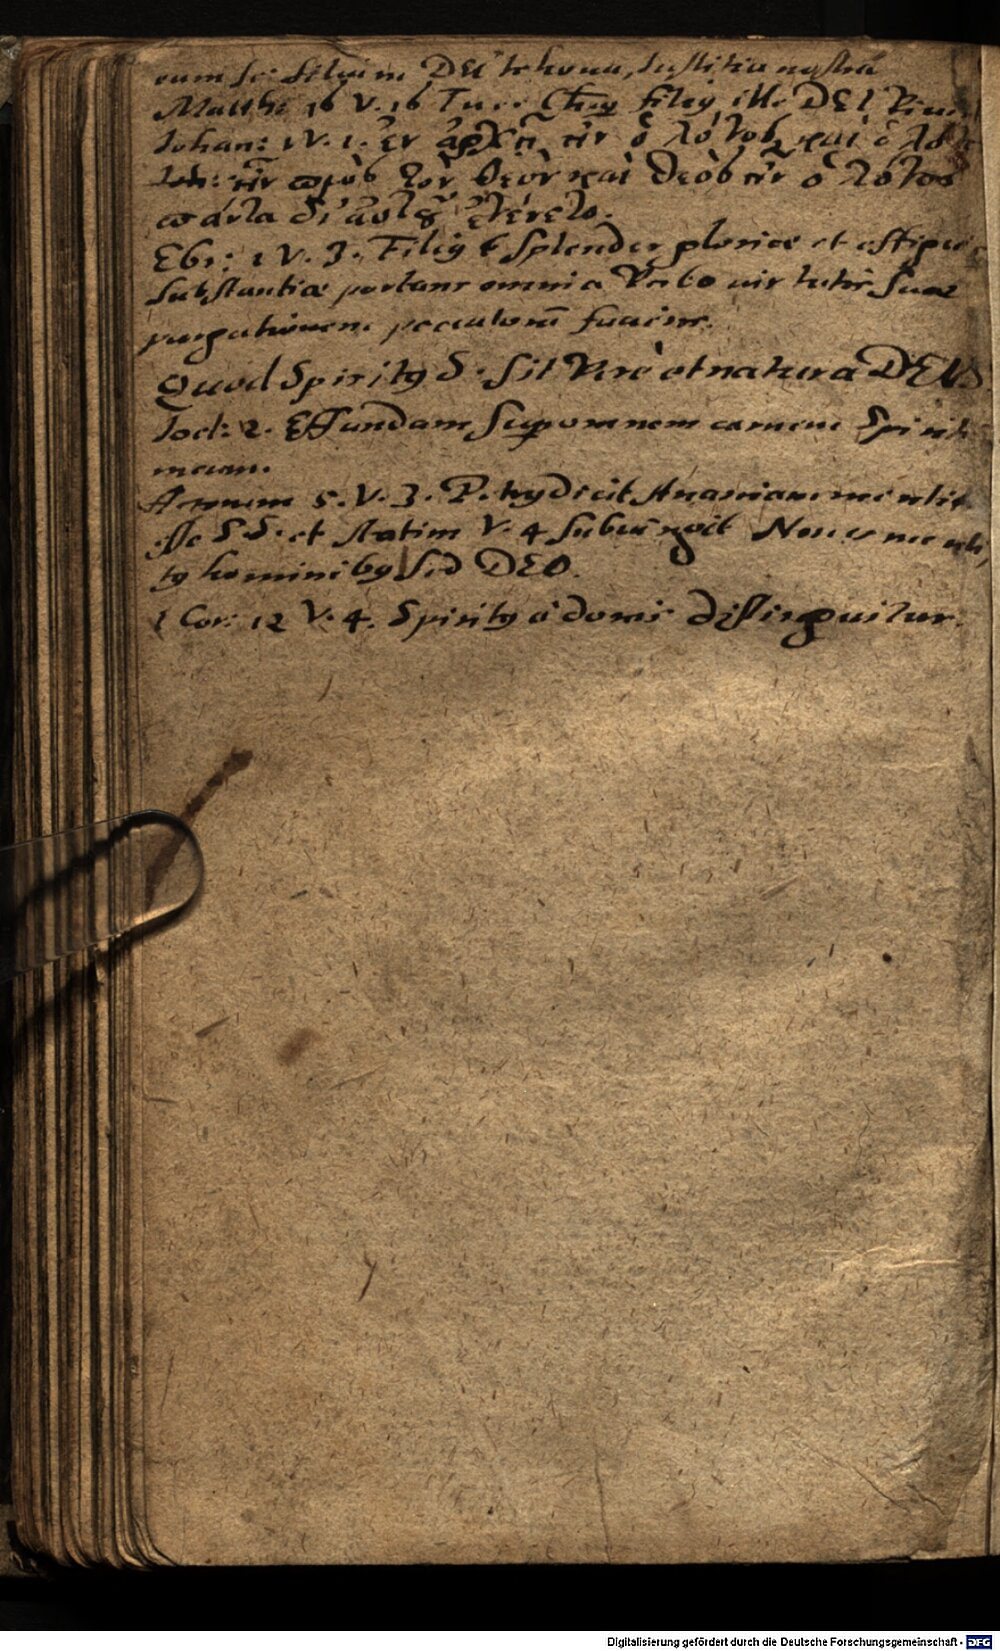 eum sc: filium DEI Iehova, Iustitia nostra
Matth: 16 V. 16 Tu es Chrꝰ filiꝰ ille DEI Vive
Iohan: 1 V. 1. ἐν ἀρχῇ ἦν ὁ λόγος καὶ ὁ λόγ
ἦν πρὸς τὸν θεὸν καὶ θεὸς ἦν ὁ λόγος
πάντα δι' αὐτοῦ ἐγένετο.
Ebr: 1 V. 3. Filiꝰ ē splendor gloriae et effigies
substantiae portans omnia Verbo virtutis suae
purgationem peccatorū faciens.
Quod Spiritꝰ S. sit Vere et natura DEUS
Ioel: 2. Effundam super omnem carnem Spirit
meum.
Actuum 5. V. 3. Petrꝰ dicit Ananiam mentit
esse S S. et statim V. 4 subiungit Non es menti
tꝰ hominibꝰ sed DEO.
1 Cor: 12 V. 4. Spiritꝰ à donis distinguitur.
Digitalisierung gefördert durch die Deutsche Forschungsgemeinschaft - DFG